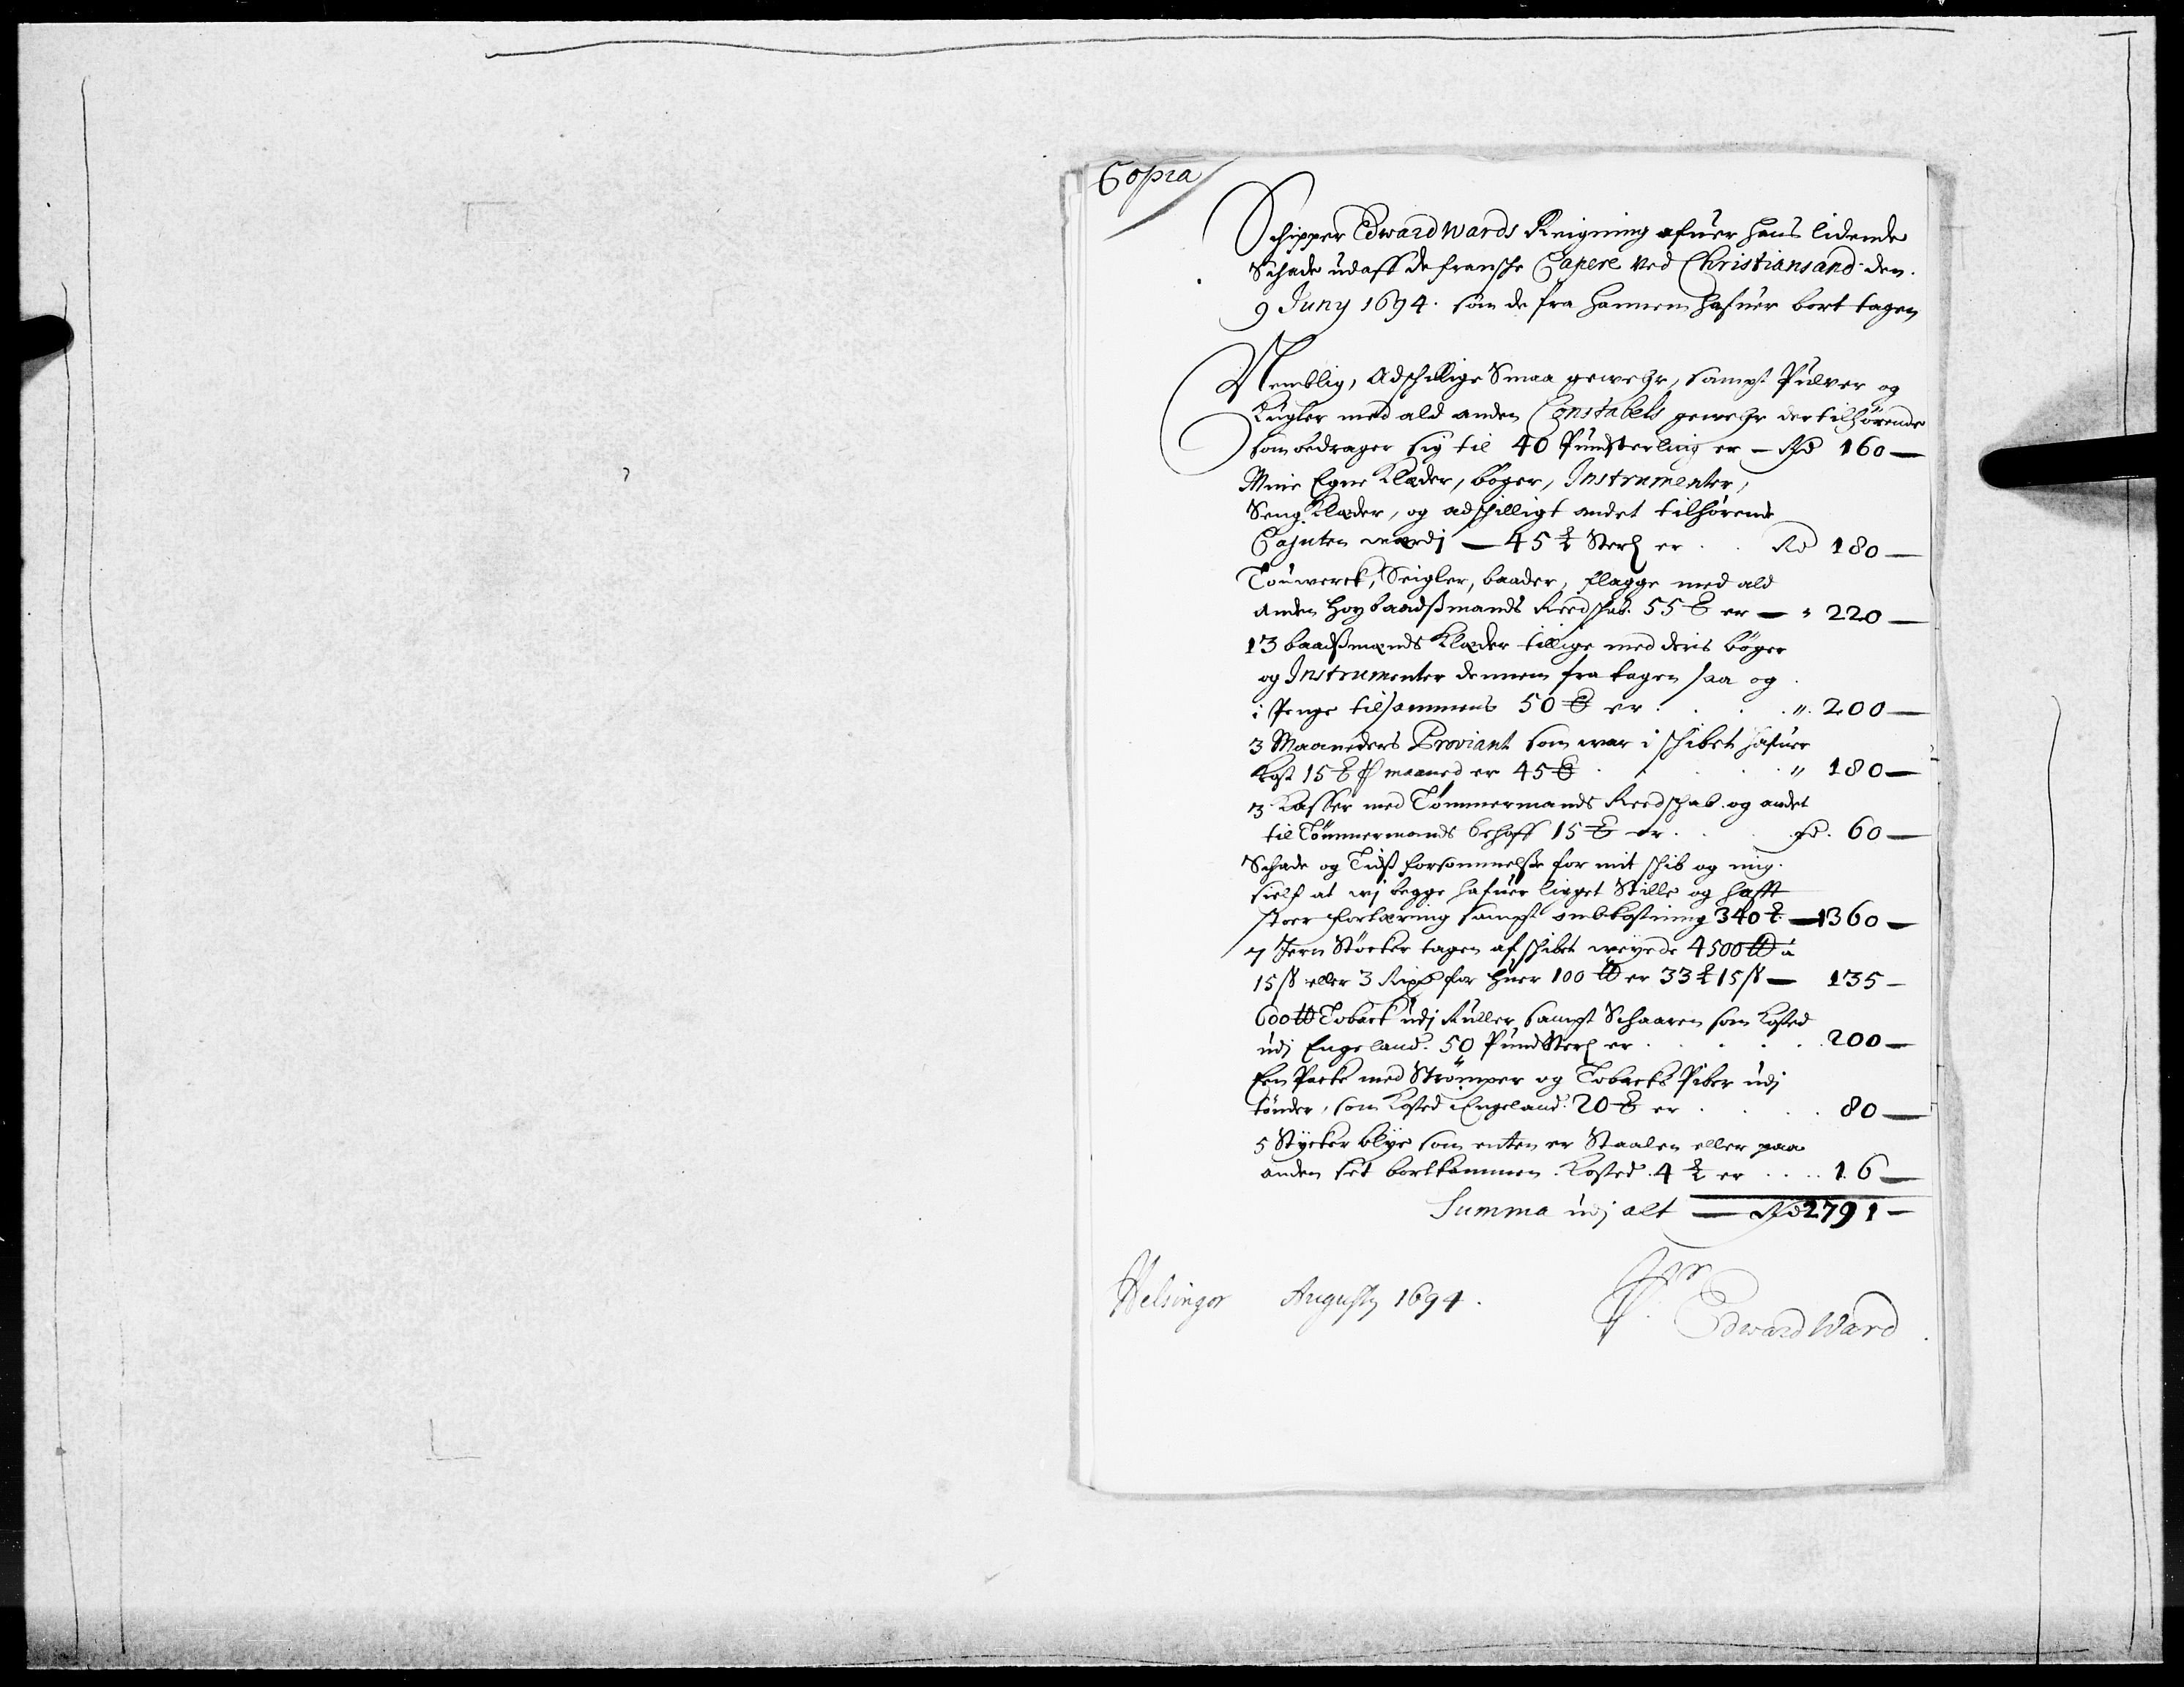 Copia
Schipper Edward Wards Reigning ofuer hans lidende
Schade udaff de fransche Capere ved Christiansand den
9 Juny 1694. som de fra hannem hafuer bort tagen
Nemblig, Adschillige Smaa gewehr, sampt Pulver og
Kugler med ald anden Constabels gewehr dertilhörende
som bedrager sig til 40 Pundsterling er — Rd 160 —
Mine Egne Klæder, böger, Instrumenter,
Seng Klæder, og adschilligt andet tilhörende
Cajuten værdj — 45 ℔ Sterl er . . Rd 180 —
Touwerck, Seigler, baader, flagge med ald
anden hoybaadsmands Reedschab. 55 ℔ er — " 220 —
13 baadsmænds Klæder tillige med deris böger
og Instrumenter dennem fra tagen saa og
i Penge tilsammens 50 ℔ er . . . ". 200 —
3 Maaneders Proviant som war i schibet hafuer
Kost 15 ℔ p maaned er 45 ℔ . . . . " 180 —
3 Kasser med Tömmermands Reedschab og andet
til Tömmermands behoff 15 ℔ er . . . Rd. 60 —
Schade og Tids forsömmelse for mit schib og mig
sielf at wj begge hafuer ligget Stille og hafft
stoer fortæring sampt ombkostning 340 ℔. — 1360 —
7 Jern Stöcker tagen af schibet weyede 4500 ℔ a
15 ß eller 3 Rixd for huer 100 ℔ er 33 ℔ 15 ß — 135 —
600 ℔ Toback udj Ruller sampt Schaaren som Kosted
udj Engeland. 50 Pund Sterl er . . . . . 200 —
Een Packe med Strömper og Tobacks Piber udj
tönder, som Kosted i Engeland. 20 ℔ er . . . . 80 —
5 Stycker blye som enten er Staalen eller paa
anden set bortkommen. Kosted. 4 ℔ er . . . . 16 —
Summa udj alt — Rd 2791 —
Helsingör Augusty 1694.
Edward Ward